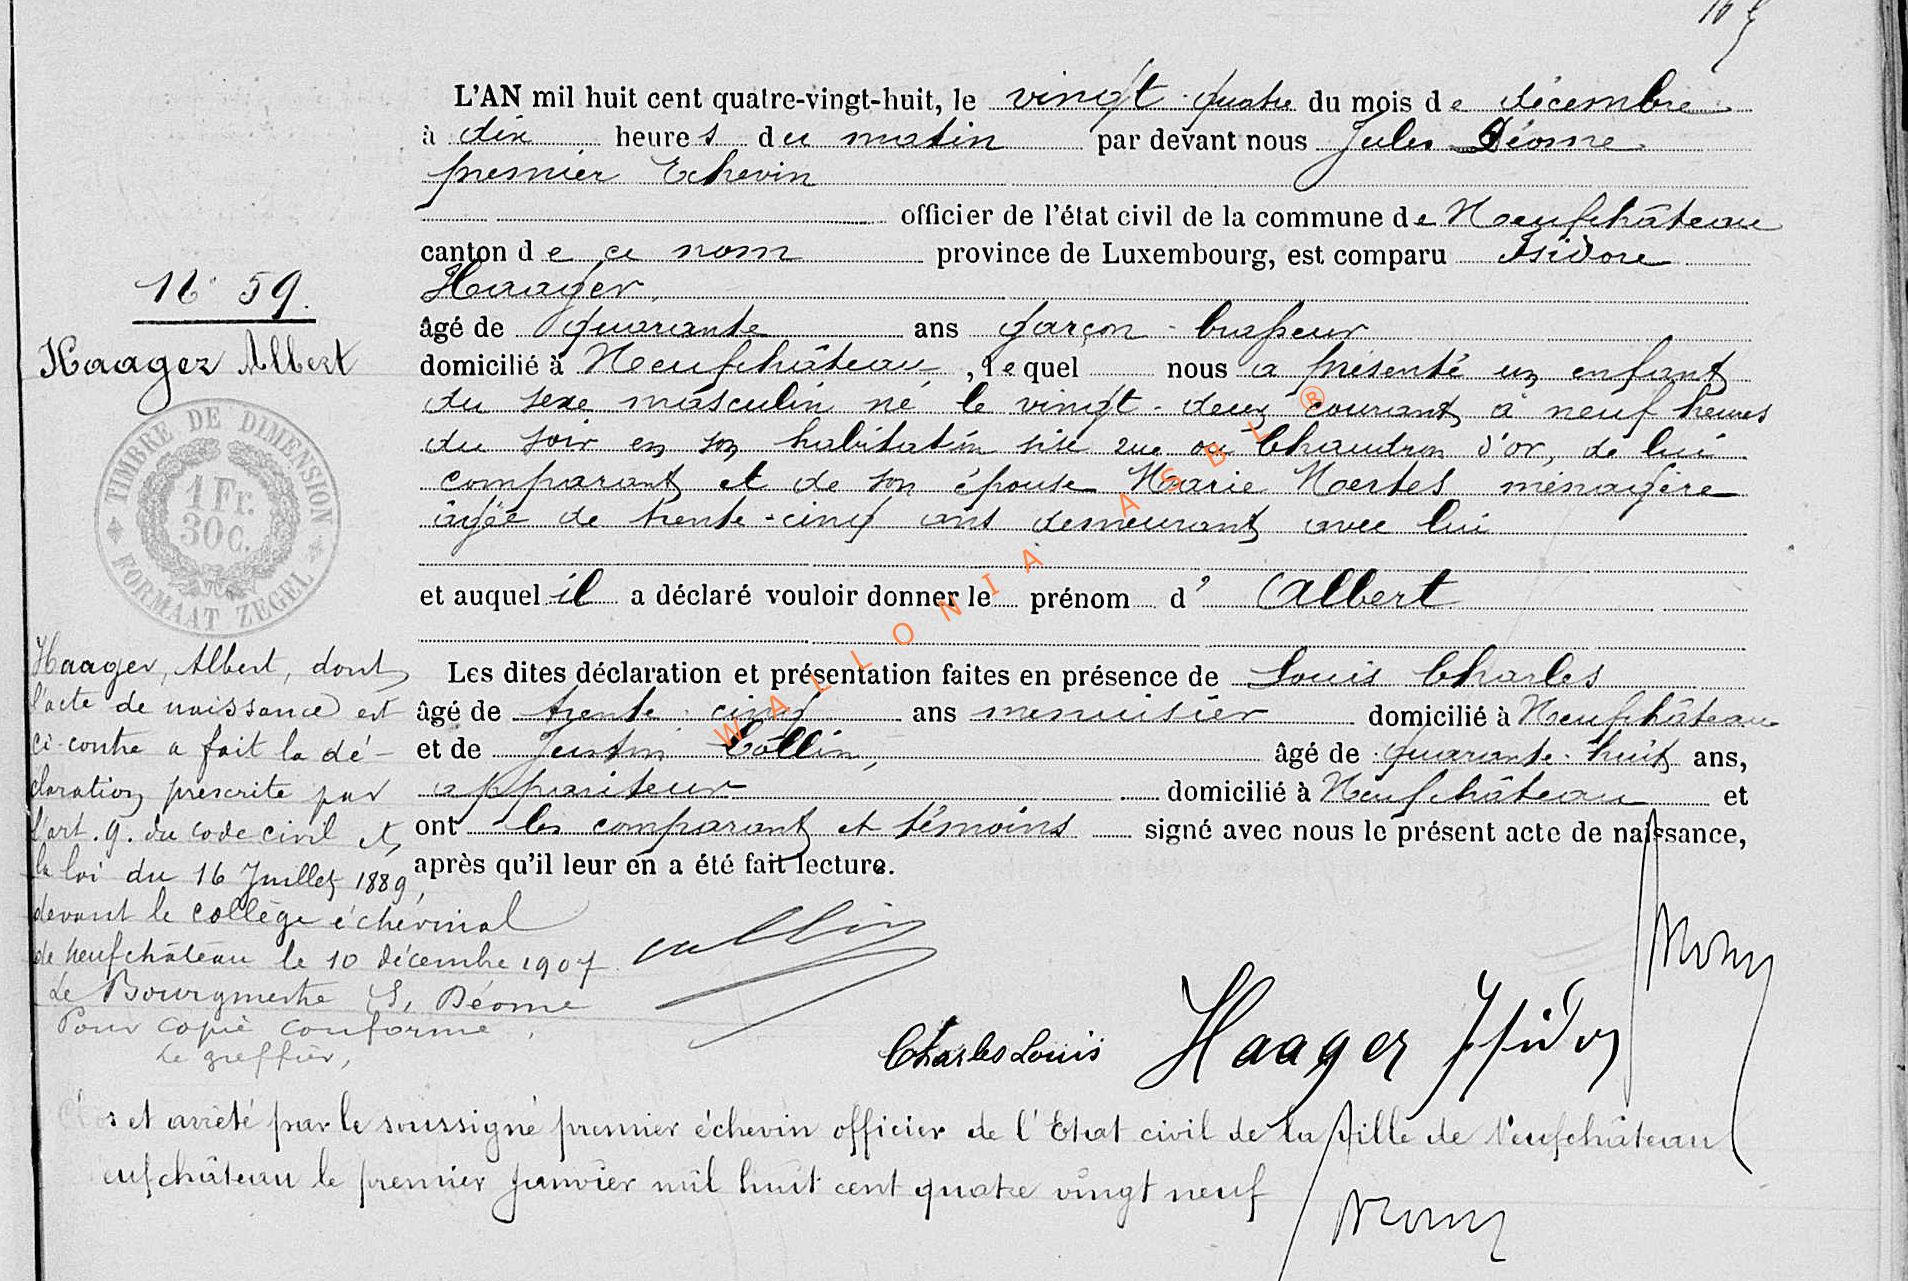 L'AN mil huit cent quatre-vingt-huit, le vingt-quatre du mois de décembre
à dix heures du matin par devant nous Jules Déome
premier Echevin
officier de l'état civil de la commune de Neufchâteau
canton de ce nom province de Luxembourg, est comparu Isidore
Haager,
âgé de quarante ans garçon-brasseur
domicilié à Neufchâteau, lequel nous a présenté un enfant
du sexe masculin né le vingt-deux courant à neuf heures
du soir en son habitation sise rue du Chaudron d'or, de lui
comparant et de son épouse Marie Mertes ménagère
âgée de trente-cinq ans demeurant avec lui
et auquel il a déclaré vouloir donner le prénom d' Albert
Les dites déclaration et présentation faites en présence de Louis Charles
âgé de trente-cinq ans menuisier domicilié à Neufchâteau
et de Justin Collin, âgé de quarante-huit ans,
appariteur domicilié à Neufchâteau et
ont les comparant et témoins signé avec nous le présent acte de naissance,
après qu'il leur en a été fait lecture.
Collin
Charles Louis Haager Isidor
N° 59.
Haager Albert
TIMBRE DE DIMENSION
1 Fr.
30 C.
FORMAAT ZEGEL
Haager, Albert, dont
l'acte de naissance est
ci-contre a fait la dé-
claration prescrite par
l'art. 9. du code civil et
la loi du 16 Juillet 1889,
devant le collège échevinal
de Neufchâteau le 10 décembre 1907.
Le Bourgmestre Déome
Pour copie conforme,
Le greffier,
Clos et arrêté par le soussigné premier échevin officier de l'Etat civil de la ville de Neufchâteau
Neufchâteau le premier janvier mil huit cent quatre vingt neuf
WALLONIA ASBL ®